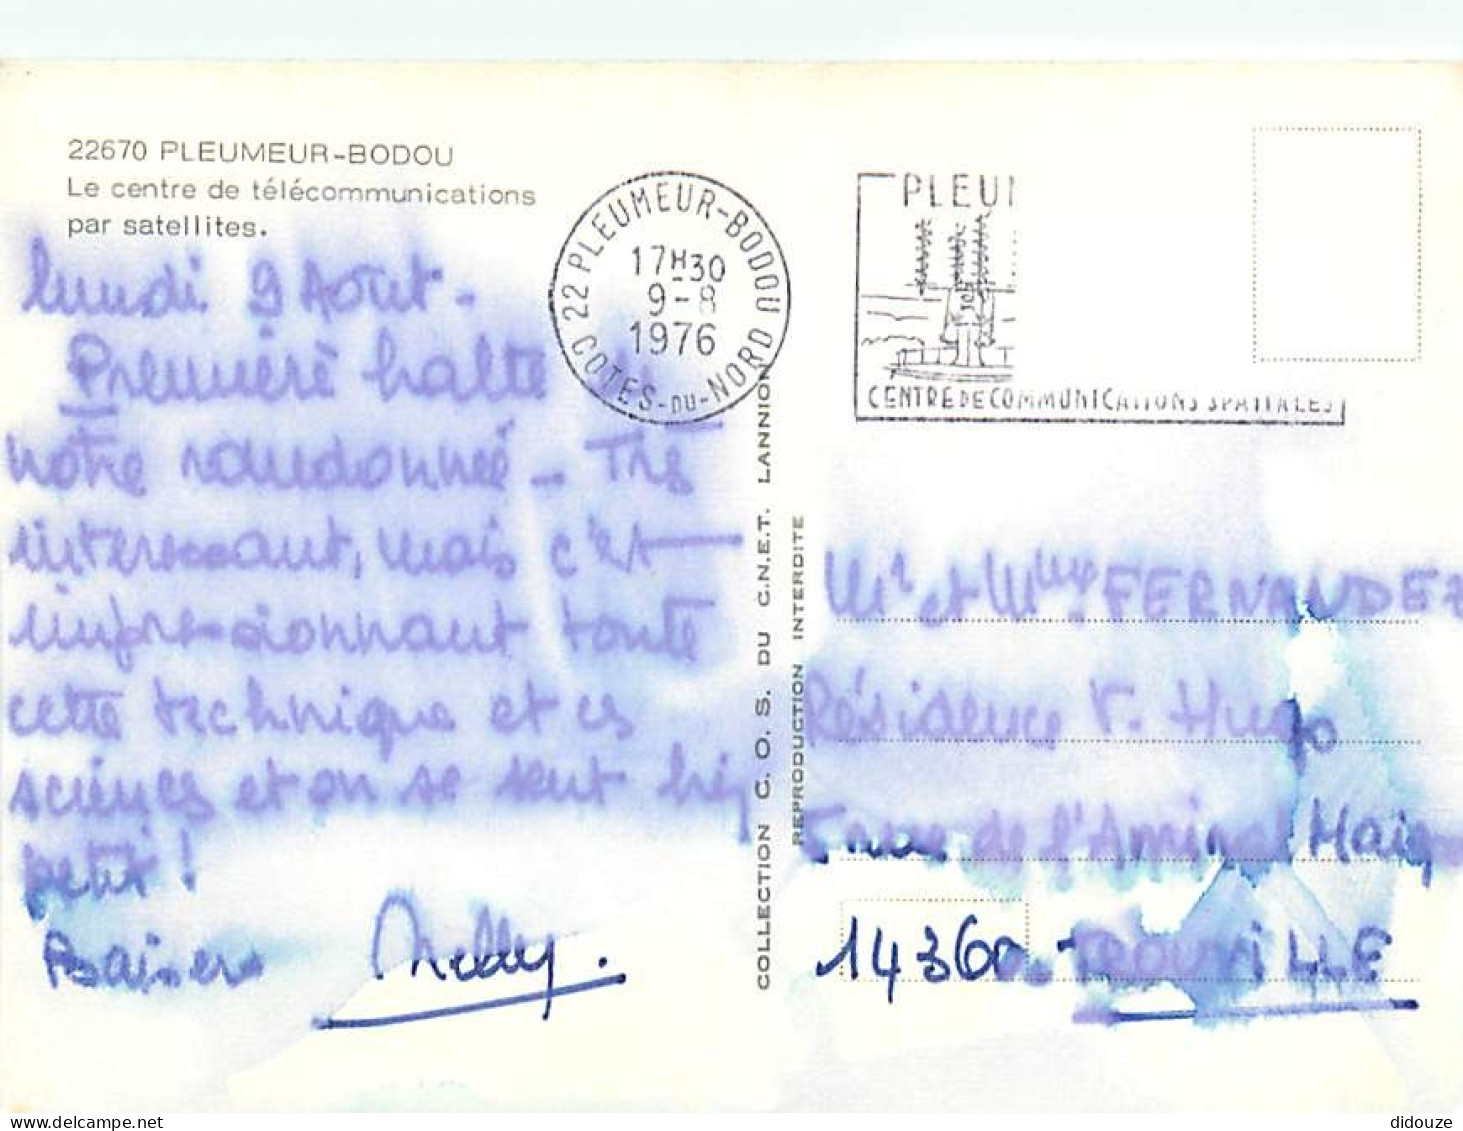 22670 PLEUMEUR-BODOU
Le centre de télécommunications
par satellites.
lundi 9 Août -
Première halte
notre randonnée - Très
interessant, mais c'est
impressionnant toute
cette technique et ces
sciences et on se sent
petit !
Baisers Nelly.
22 PLEUMEUR-BODOU
17H30
9-8
1976
COTES-DU-NORD
PLEU
CENTRE DE COMMUNICATIONS SPATIALES
COLLECTION C.O.S. DU C.N.E.T. LANNION
REPRODUCTION INTERDITE
Mr et Mme FERNANDEZ
Résidence V. Hugo
rue de l'Amiral
14360 TROUVILLE
didouze